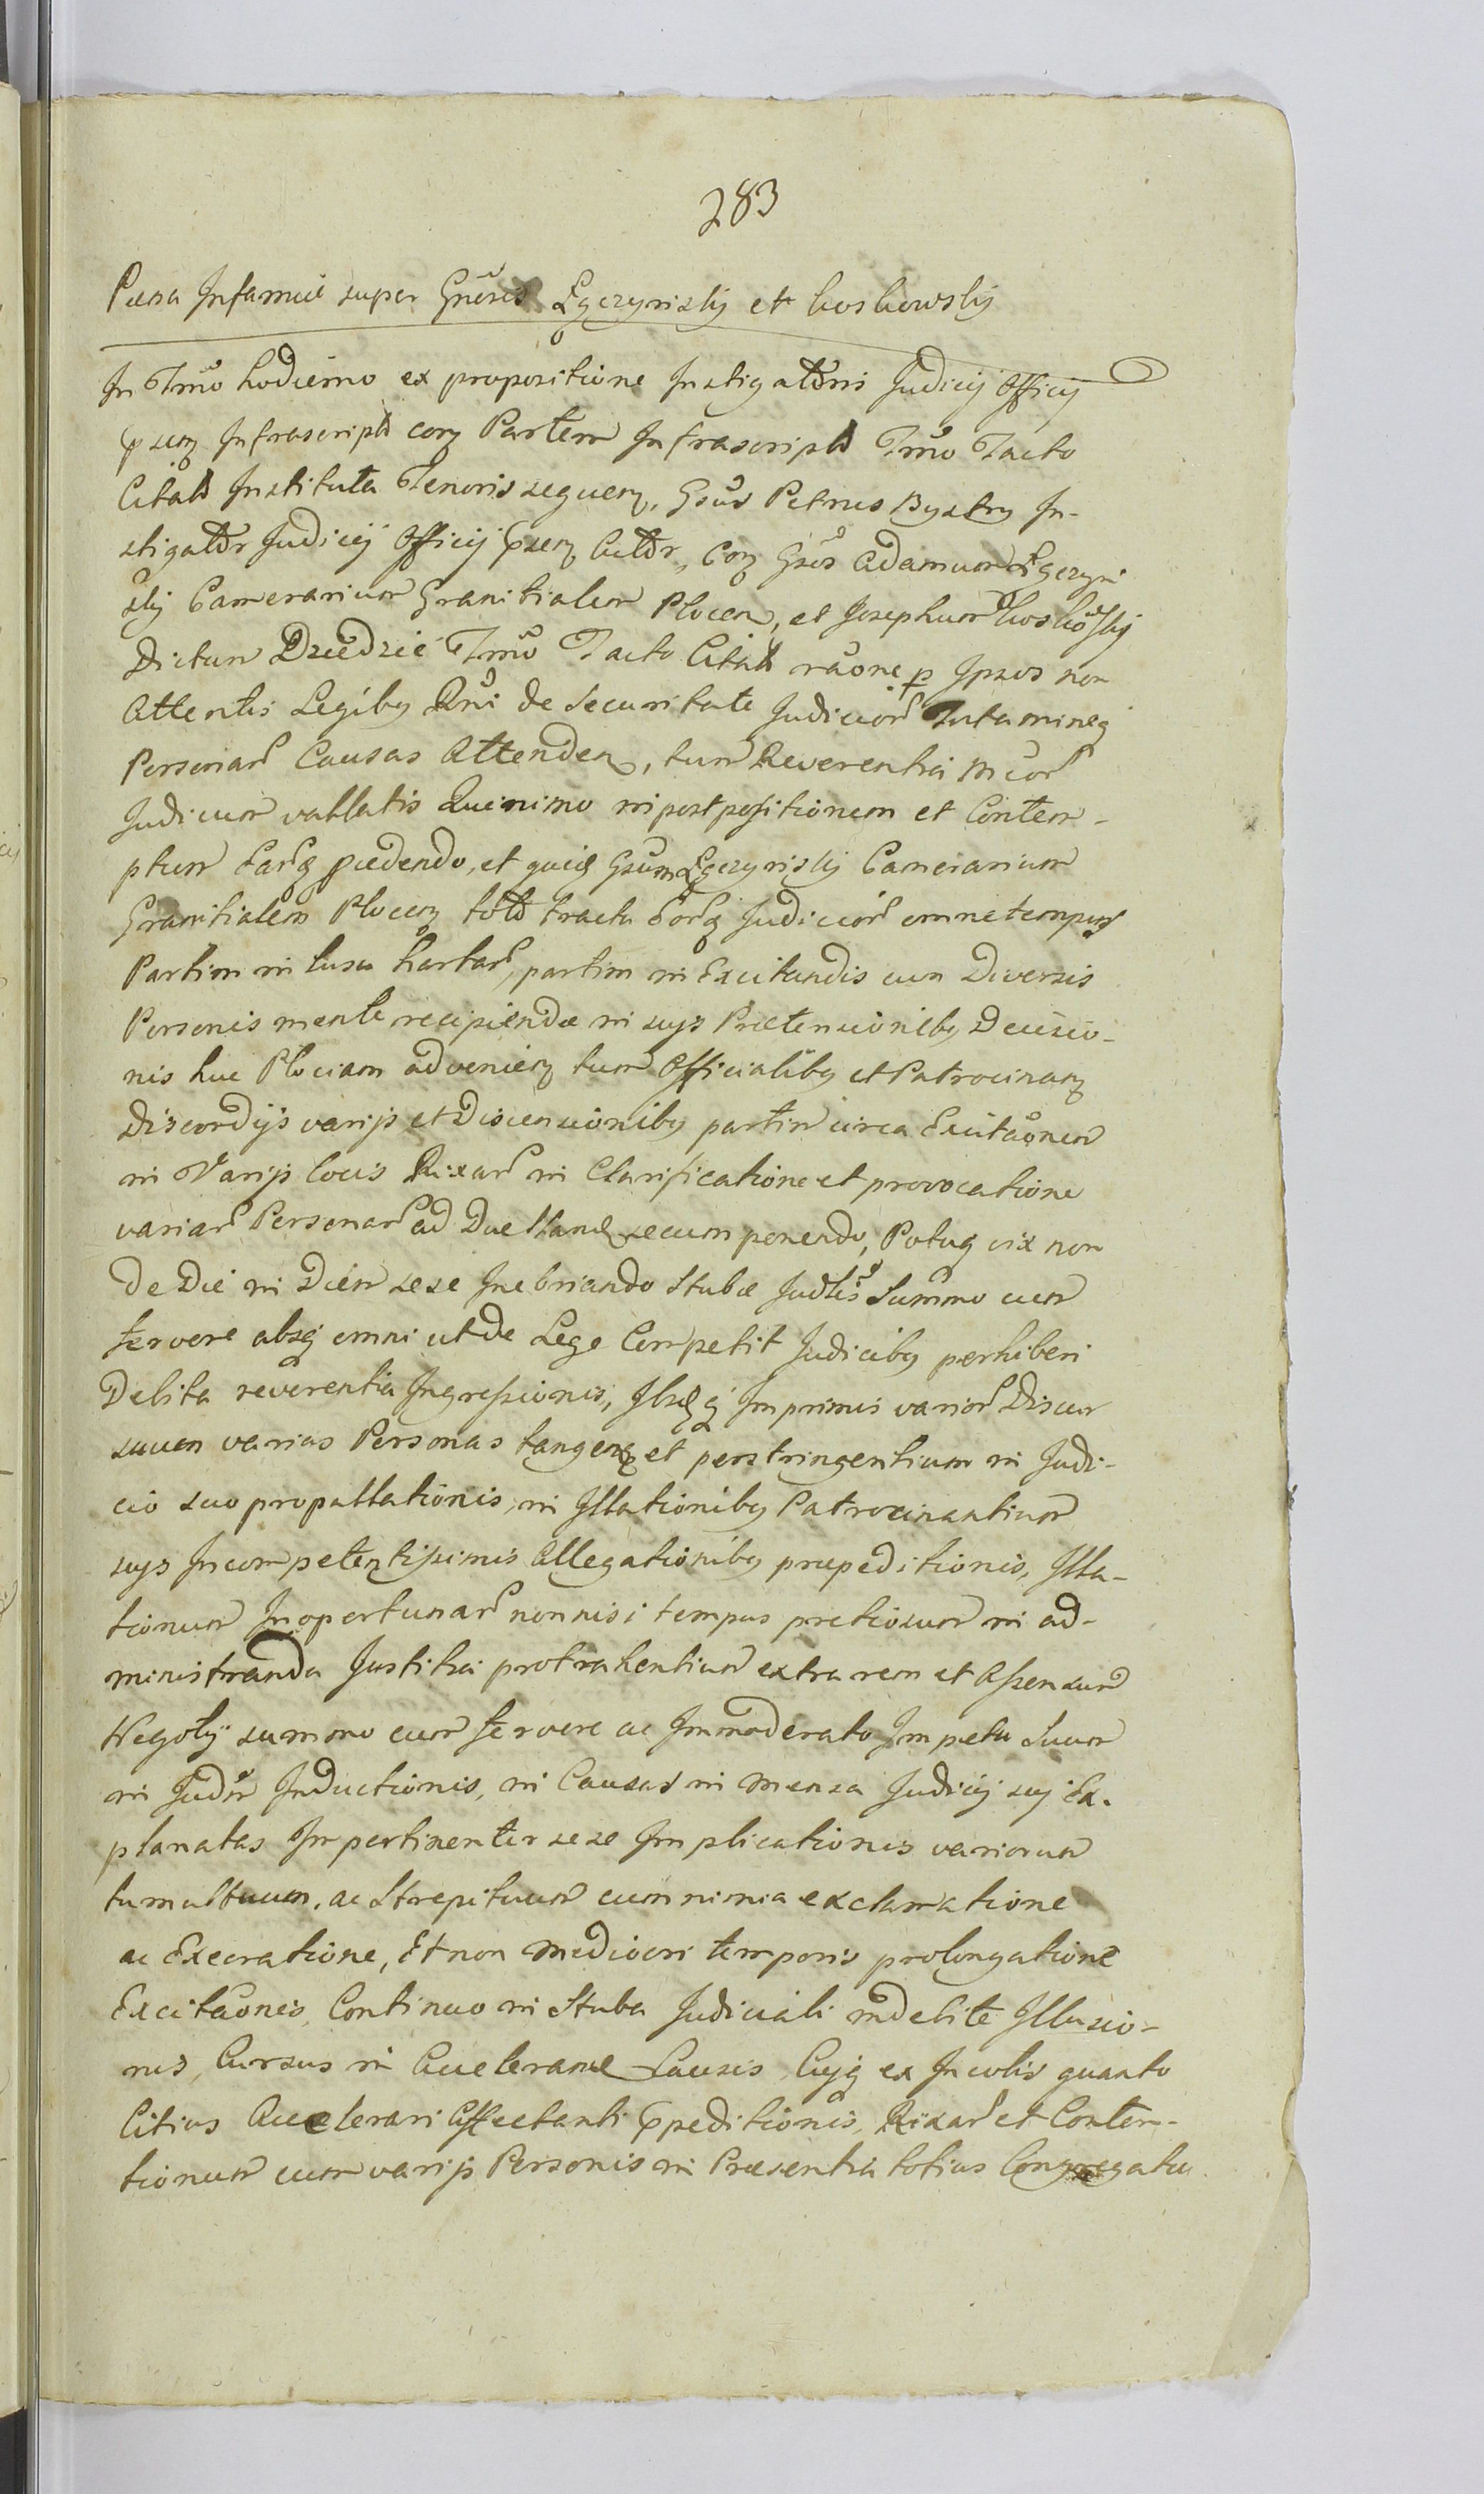 283
Pæna Infamiæ super Gn̄eros Łączynskij et koskowskij
In Tm̄o hodierno ex propositione Instigatoris Judicij Officij
pñtis Infrascripti con Partem Infrascriptā Tm̄o Tacto
Citatā Instituta Tenoris sequen, Gn̄sus Petrus Bystry In-
stigator Judicij Officij pñtis Actor, con Gn̄sos Adamum Łączyn
skij Camerarium Granitialem Plocen, et Josephum koskow̄skij
Dictum Dziedzic Tm̄o Tacto Citatā rāone p Ipsos non
Attentis Legibus Rñi de Securitate Judicior Tutamineq
Personar Causas Attenden, tum Reverentia M̄cor
Judicum vallatis Quinimo in postpositionem et Contem-
ptum Earq pædendo, et quidē Gn̄sum Łączynskij Camerarium
Granitialem Plocen toto tractu horq Judicior omne tempus
Partim in lusu kartar, partim in Excitandis cum Diversis
Personis mente recipiendæ in suys Prætensionibus Decisio-
nis huc Plociam advenien tum Officialibus et Patrocinan
Discordijs varijs et Discensionibus partim circa Excitāonem
in Varijs locis Rixar in Clarificatione et provocatione
variar Personar ad Duellandū secum ponendo, Potuq vix non
de Die in Diem sese Inebriando Stubæ Judlis Summo cum
fervore absq omni ut de Lege Competit Judicibus perhiberi
Debita reverentia Ingressionis, Ibidq Imprimis varior Discur
suum varias Personas tangen et perstringentium in Judi-
cio suo propallationis, in Illationibus Patrocinantium
suys Incompetentissimis Allegationibus præpeditionis, Illa-
tionum Inoportunar nonnisi tempus pretiosum in ad-
ministranda Justitia protrahentium extra rem et Assensum
Negotij summo cum fervore ac Immoderato Impetu Suum
in Judm Inductionis, in Causas in mensa Judicij suj Ex-
planatas Impertinenter sese Implicationis variorum
tumultuum, ac Strepituum cum nimia exclamatione
ac Execratione, Et non mediocri temporis prolongatione
Excitāonis, Continuo in Stuba Judiciali indebite Illusio-
nis, Cursus in Accelerandæ Causis, Cujq ex Incolis quanto
Citius Accelerari Affectanti Expeditionis, Rixar et Conten-
tionum cum varijs Personis in Præsentia totius Congregatu